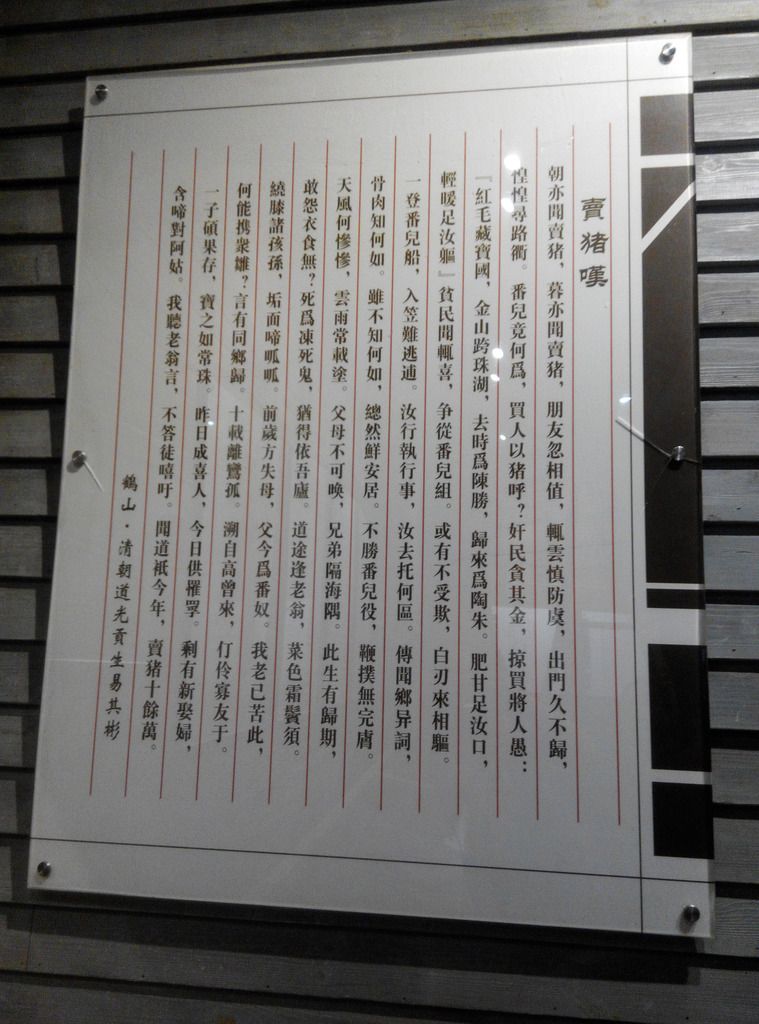 賣猪嘆
朝亦聞賣猪，暮亦聞賣猪，朋友忽相值，輒雲慎防虞，出門久不歸，
惶惶尋路衢。番兒竟何爲，買人以猪呼？奸民貪其金，掠買將人愚：
『紅毛藏寶國，金山跨珠湖，去時爲陳勝，歸來爲陶朱。肥甘足汝口，
輕暖足汝軀』貧民聞輒喜，争從番兒組。或有不受欺，白刃來相驅。
一登番兒船，入笠難逃逋。汝行執行事，汝去托何區。傳聞鄉异詞，
骨肉知何如。雖不知何如，總然鮮安居。不勝番兒役，鞭撲無完膚。
天風何慘慘，雲雨常載塗。父母不可唤，兄弟隔海隅。此生有歸期，
敢怨衣食無？死爲凍死鬼，猶得依吾廬。道途逢老翁，菜色霜鬢須。
繞膝諸孩孫，垢面啼呱呱。前歲方失母，父今爲番奴。我老已苦此，
何能携衆雛？言有同鄉歸。十載離鸞孤。溯自高曾來，仃伶寡友于。
一子碩果存，寶之如常珠。昨日成喜人，今日供罹罦。剩有新娶婦，
含啼對阿姑。我聽老翁言，不答徒嘻吁。聞道衹今年，賣猪十餘萬。
鶴山·清朝道光貢生易其彬